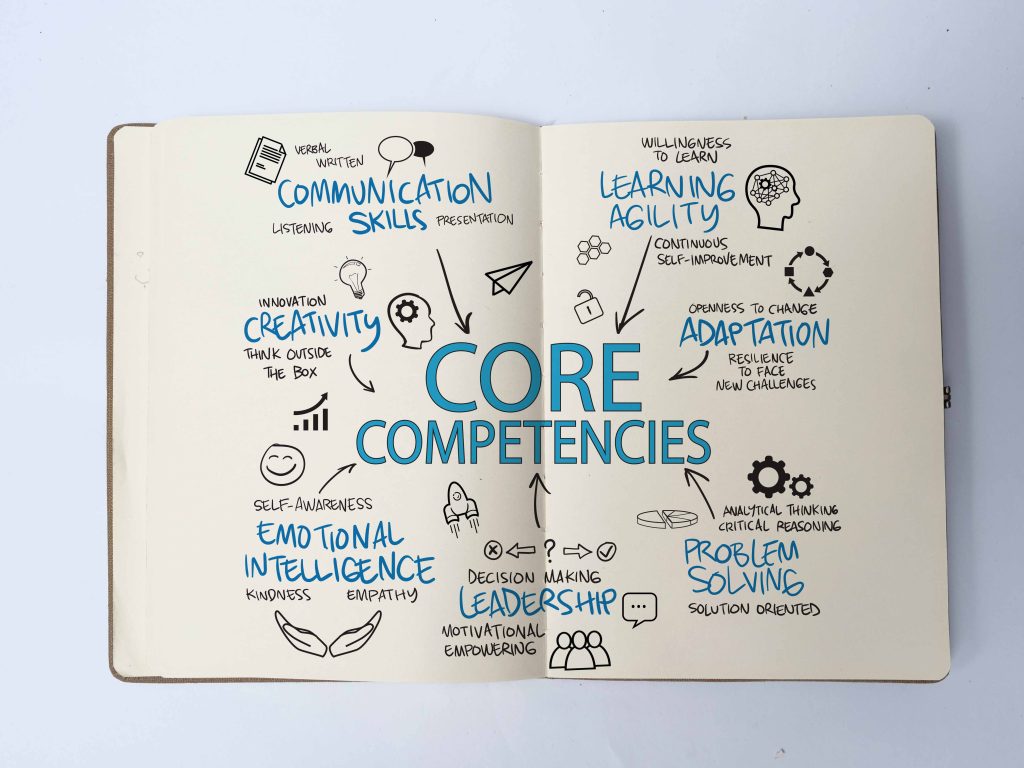 VERBAL
WRITTEN
COMMUNICATION
SKILLS
LISTENING
PRESENTATION
INNOVATION
CREATIVITY
THINK OUTSIDE
THE BOX
WILLINGNESS
TO LEARN
LEARNING
AGILITY
CONTINUOUS
SELF-IMPROVEMENT
OPENNESS TO CHANGE
ADAPTATION
RESILIENCE
TO FACE
NEW CHALLENGES
CORE
COMPETENCIES
SELF-AWARENESS
EMOTIONAL
INTELLIGENCE
KINDNESS
EMPATHY
?
DECISION MAKING
LEADERSHIP
MOTIVATIONAL
EMPOWERING
ANALYTICAL THINKING
CRITICAL REASONING
PROBLEM
SOLVING
SOLUTION ORIENTED